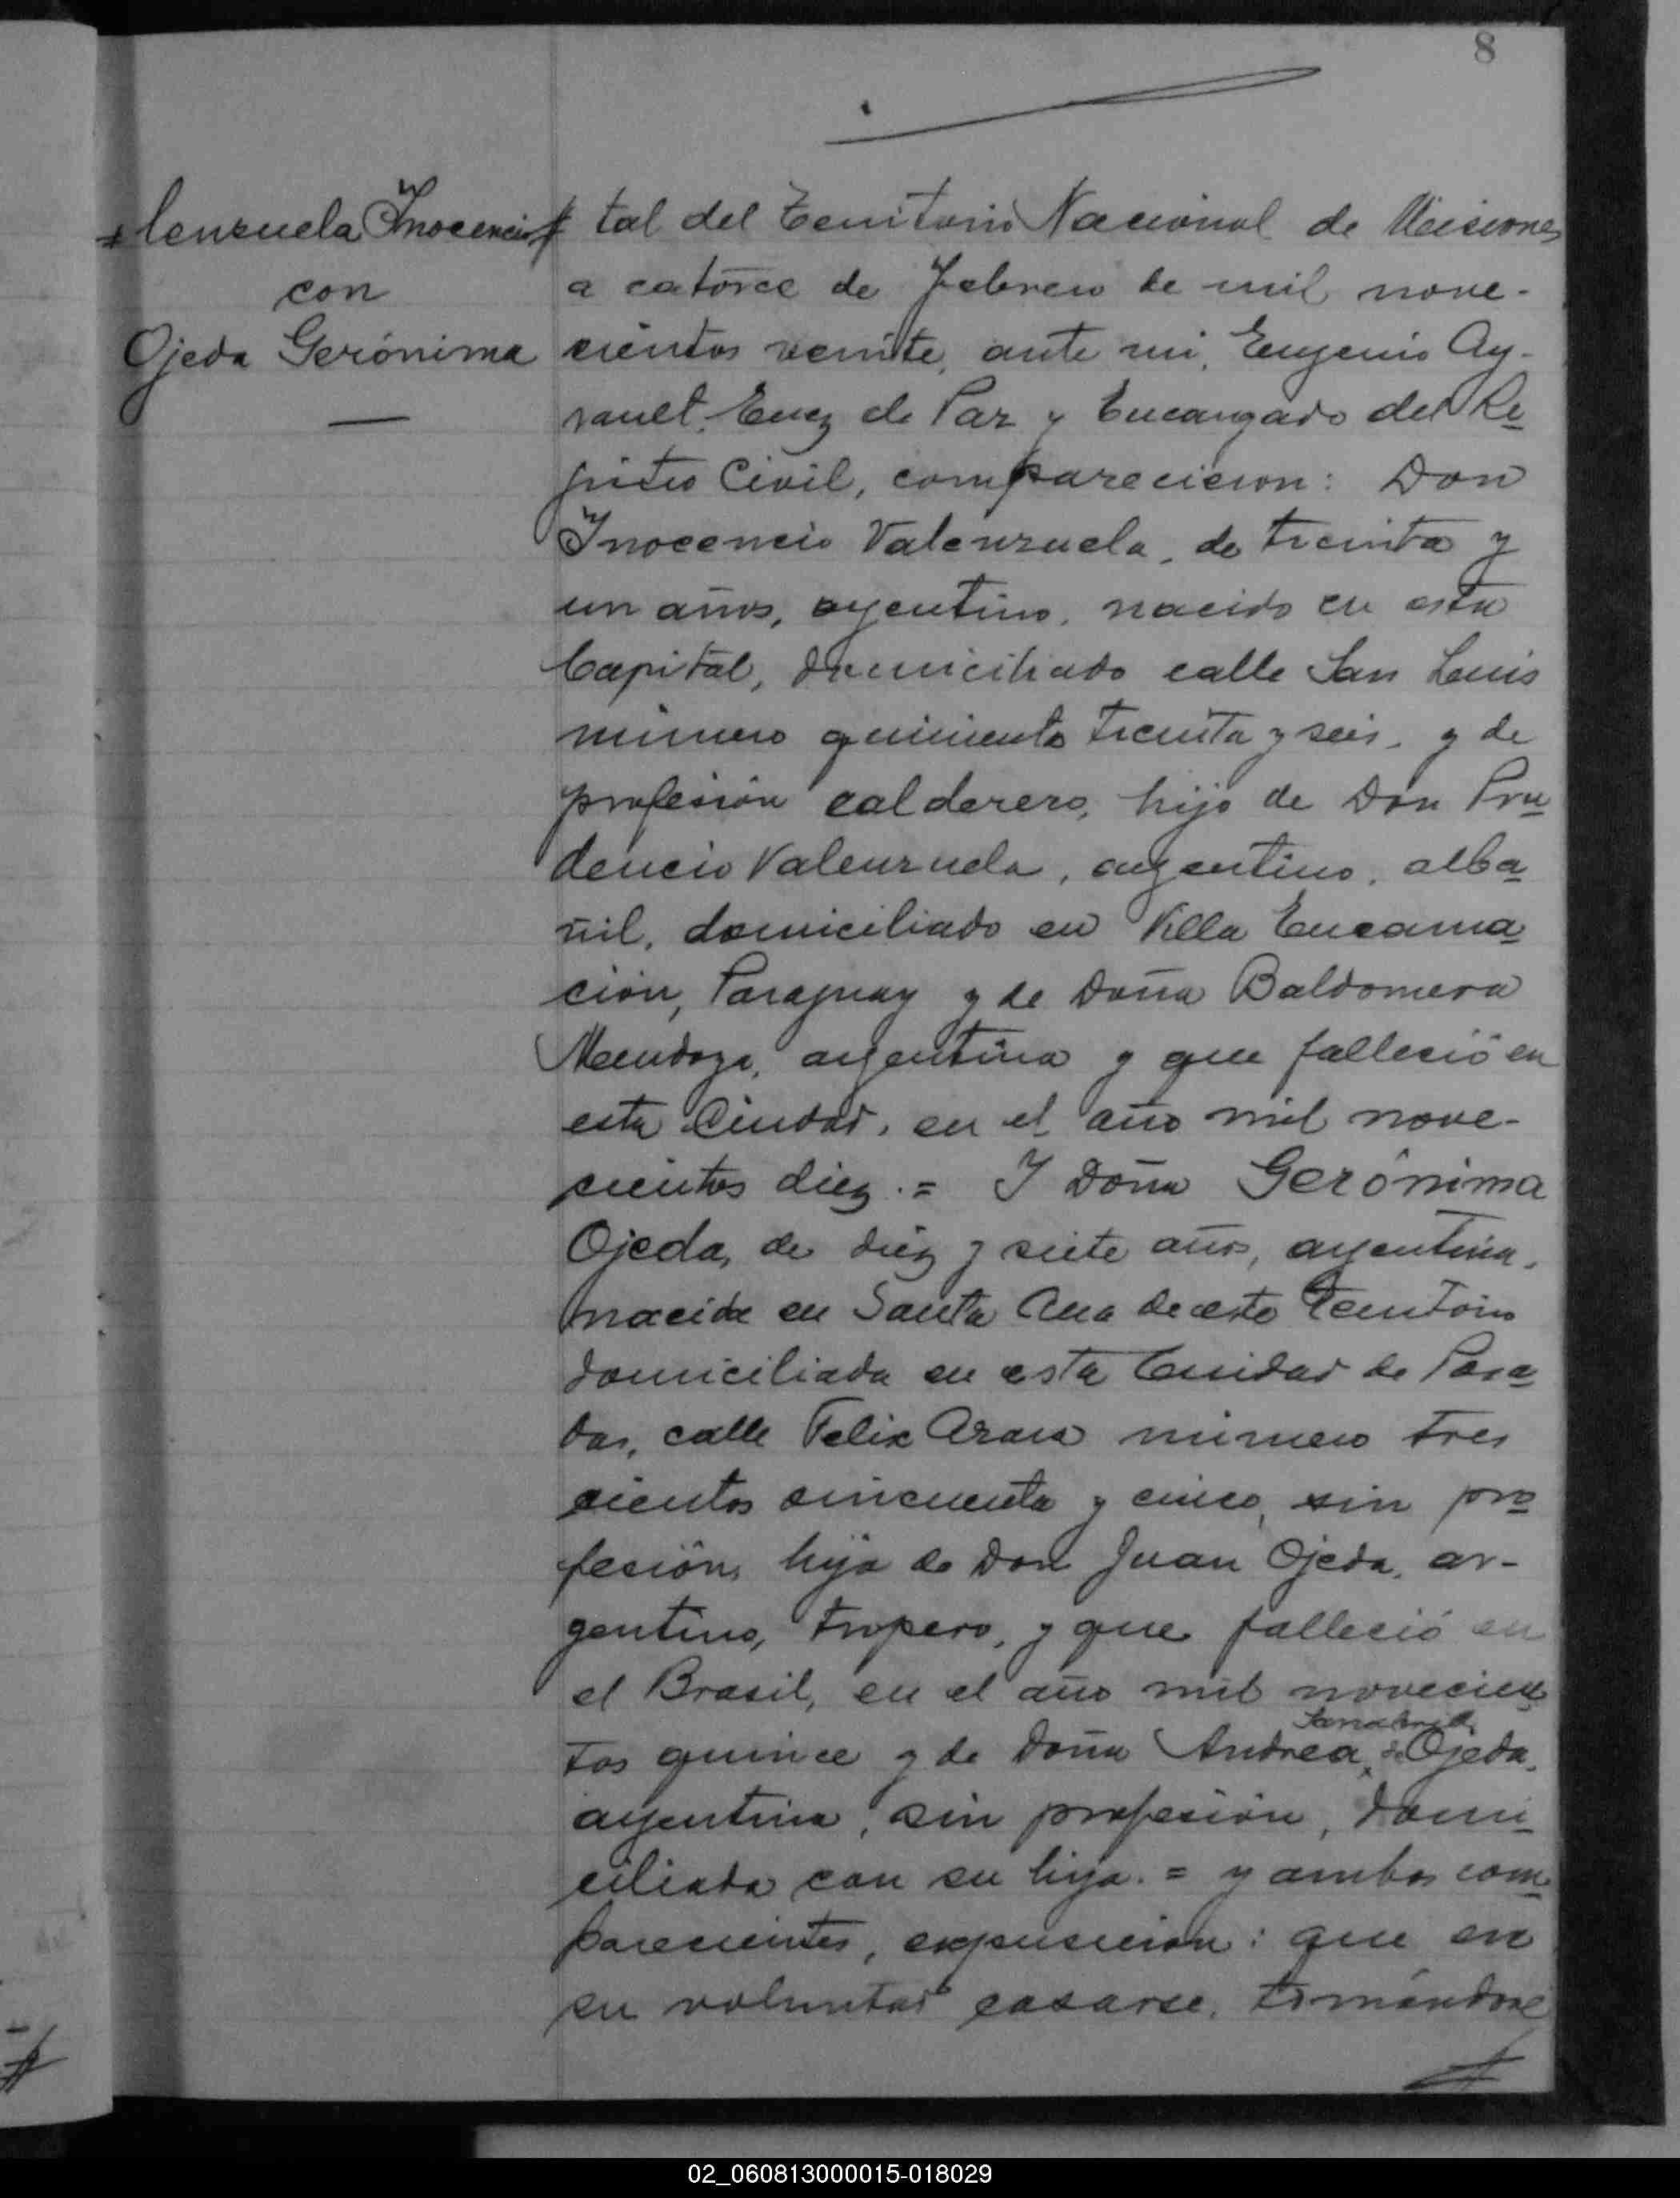 8
lenzuela Inocencio
con
Ojeda Gerónima
tal del Territorio Nacional de Misiones
a catorce de Febrero de mil nove-
cientos veinte, ante mi, Eugenio Ay-
rault, Juez de Paz y Encargado del Re
gistro Civil, comparecieron: Don
Inocencio Valenzuela, de treinta y
un años, argentino, nacido en esta
Capital, domiciliado calle San Luis
número quinientos treinta y seis, y de
profesión calderero, hijo de Don Pru
dencio Valenzuela, argentino, alba
ñil, domiciliado en Villa Encarna
ción, Paraguay y de Doña Baldomera
Mendoza, argentina y que falleció en
esta Ciudad, en el año mil nove-
cientos diez.= Y Doña Gerónima
Ojeda, de diez y siete años, argentina,
nacida en Santa Ana de este Territorio
domiciliada en esta Ciudad de Posa
das, calle Felix Azara número tres
cientos cincuenta y cinco, sin pro
fesión, hija de Don Juan Ojeda, ar-
gentino, tropero, y que falleció en
el Brasil, en el año mil novecien
Sanabria
tos quince y de Doña Andrea de Ojeda,
argentina, sin profesión, domi
ciliada con su hija.= y ambos com
parecientes, expusieron: que en
su voluntad casarse, tomándose
02_060813000015-018029